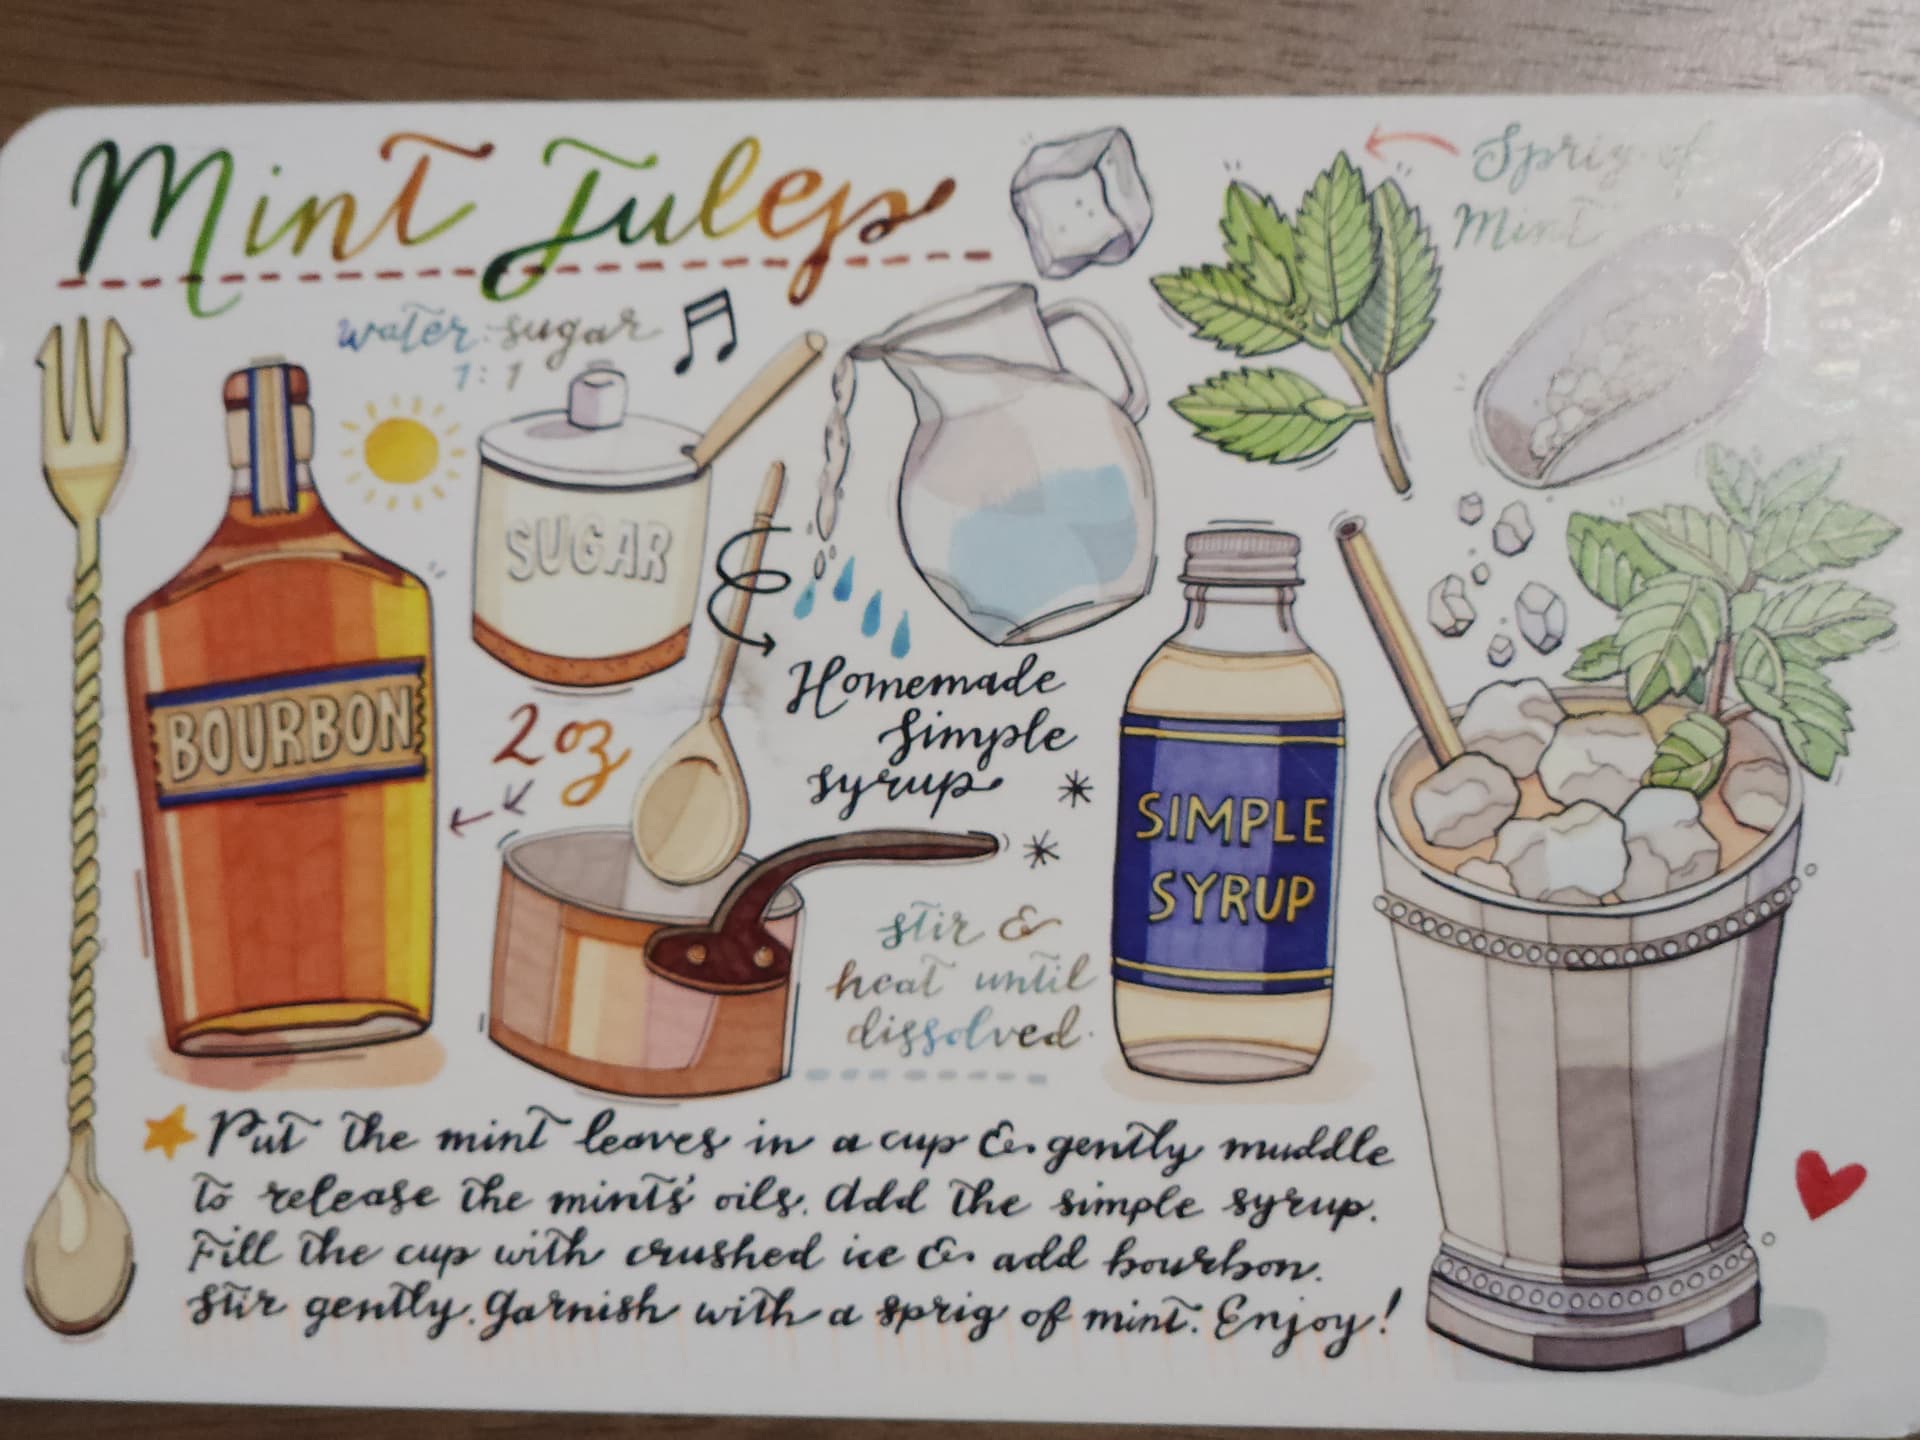 Mint Julep
Sprig of
Mint
water : sugar
1 : 1
SUGAR
BOURBON
2 oz
Homemade
Simple
syrup
SIMPLE
SYRUP
stir &
heat until
dissolved.
Put the mint leaves in a cup & gently muddle
to release the mints' oils. Add the simple syrup.
Fill the cup with crushed ice & add bourbon.
Stir gently. Garnish with a sprig of mint. Enjoy!